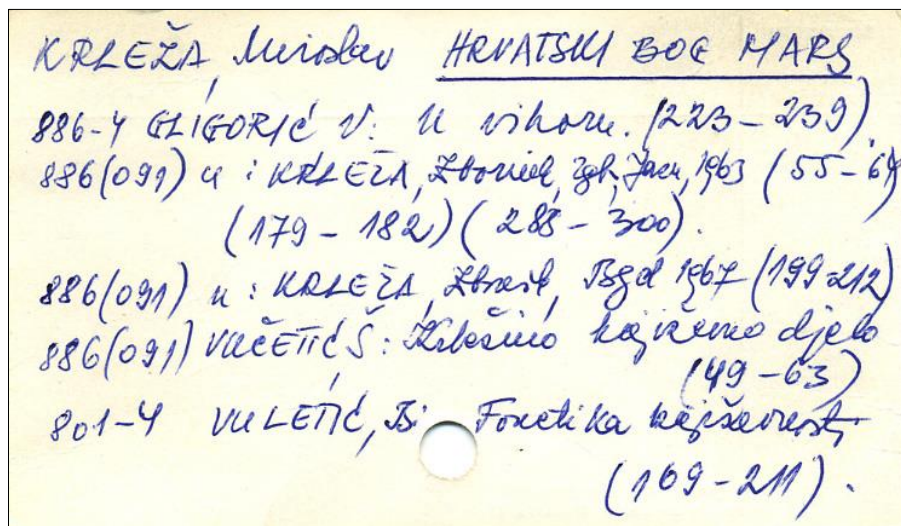 KRLEŽA, Miroslav HRVATSKI BOG MARS
886-4 GLIGORIĆ V. U vihoru. (223-239)
886(091) u: KRLEŽA, Zbornik, Zgb, Jazu, 1963 (55-64)
(179-182)(288-300).
886(091) u: KRLEŽA, Zbornik, Bgd 1967 (199-212)
886(091) VUČETIĆ Š: Krležino književno djelo
(49-63)
801-4 VULETIĆ, B: Fonetika književnosti
(169-211).